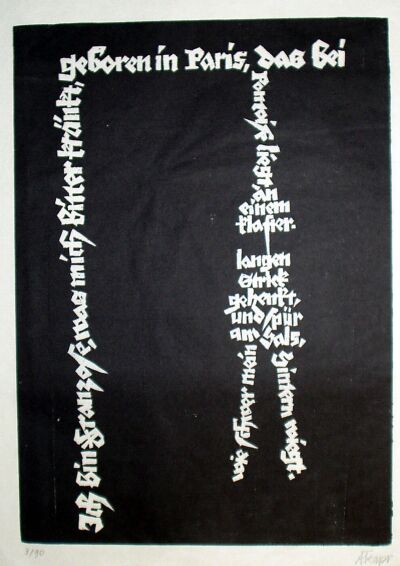 Ich bin Franzose, was mich bitter kränkt,
geboren in Paris, das bei
Pontoise liegt,
an
einem
klafter-
langen
Strick
gehenkt,
und spür
am Hals,
wie schwer mein
Hintern wiegt.
3/90